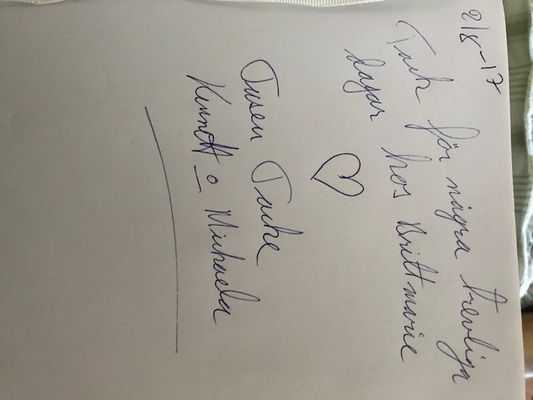 2/8-17
Tack för några trevliga
dagar hos Brittmarie
Tusen Tack
Kenneth o Michaela